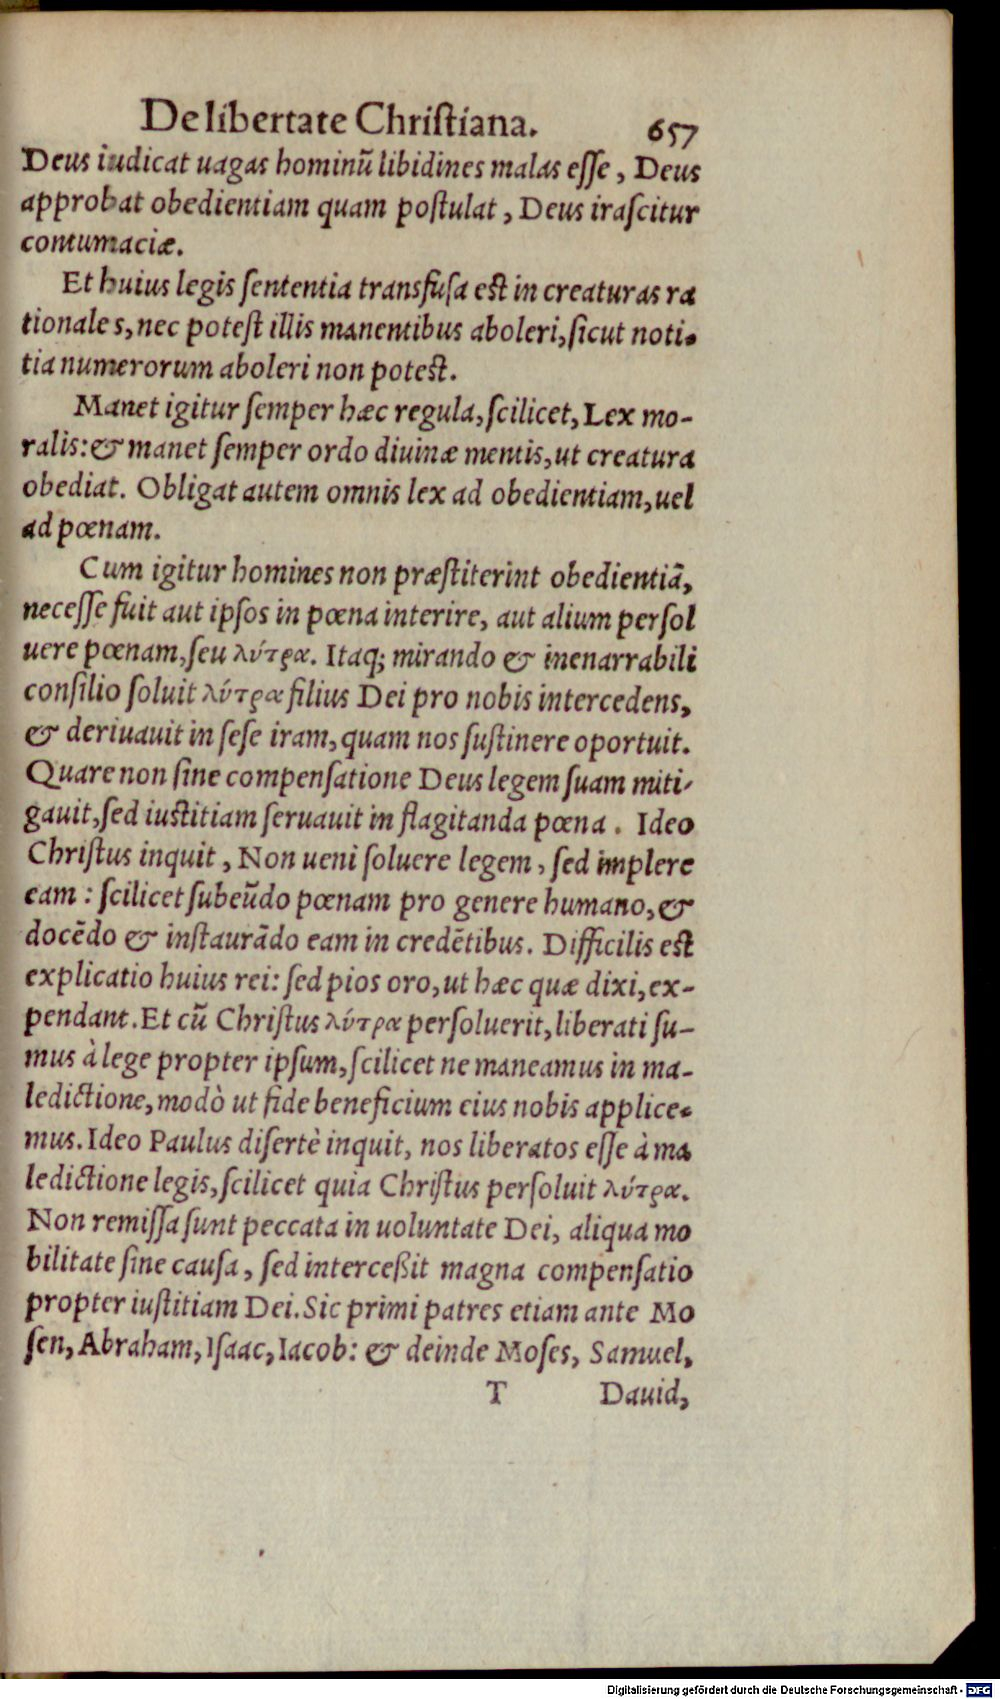 De libertate Chriſtiana. 657
Deus iudicat uagas hominũ libidines malas eſſe, Deus
approbat obedientiam quam poſtulat, Deus iraſcitur
contumaciæ.
Et huius legis ſententia transfuſa eſt in creaturas ra
tionales, nec poteſt illis manentibus aboleri, ſicut noti-
tia numerorum aboleri non poteſt.
Manet igitur ſemper hæc regula, ſcilicet, Lex mo-
ralis: & manet ſemper ordo diuinæ mentis, ut creatura
obediat. Obligat autem omnis lex ad obedientiam, uel
ad pœnam.
Cum igitur homines non præſtiterint obedientiã,
neceſſe fuit aut ipſos in pœna interire, aut alium perſol
uere pœnam, ſeu λύτρα. Itaq; mirando & inenarrabili
conſilio ſoluit λύτρα filius Dei pro nobis intercedens,
& deriuauit in ſeſe iram, quam nos ſuſtinere oportuit.
Quare non ſine compenſatione Deus legem ſuam miti-
gauit, ſed iuſtitiam ſeruauit in flagitanda pœna. Ideo
Chriſtus inquit, Non ueni ſoluere legem, ſed implere
eam: ſcilicet ſubeũdo pœnam pro genere humano, &
docẽdo & inſtaurãdo eam in credẽtibus. Difficilis eſt
explicatio huius rei: ſed pios oro, ut hæc quæ dixi, ex-
pendant. Et cũ Chriſtus λύτρα perſoluerit, liberati ſu-
mus à lege propter ipſum, ſcilicet ne maneamus in ma-
ledictione, modò ut fide beneficium eius nobis applice-
mus. Ideo Paulus diſertè inquit, nos liberatos eſſe à ma
ledictione legis, ſcilicet quia Chriſtus perſoluit λύτρα.
Non remiſſa ſunt peccata in uoluntate Dei, aliqua mo
bilitate ſine cauſa, ſed interceßit magna compenſatio
propter iuſtitiam Dei. Sic primi patres etiam ante Mo
ſen, Abraham, Iſaac, Iacob: & deinde Moſes, Samuel,
T Dauid,
Digitalisierung gefördert durch die Deutsche Forschungsgemeinschaft - DFG